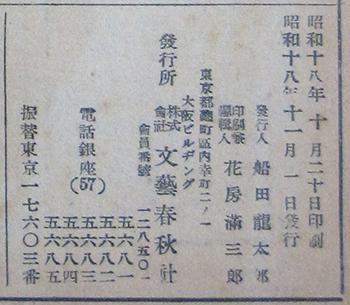 昭和十八年十月二十日印刷
昭和十八年十一月一日發行
發行人 船田龍太郎
印刷兼編輯人 花房滿三郎
東京都麴町區内幸町二ノ一
大阪ビルヂング
發行所 株式會社 文藝春秋社
會員番號 一二八五〇一
電話銀座(57)
五六八一
五六八二
五六八三
五六八四
五六八五
振替東京一七六〇三番